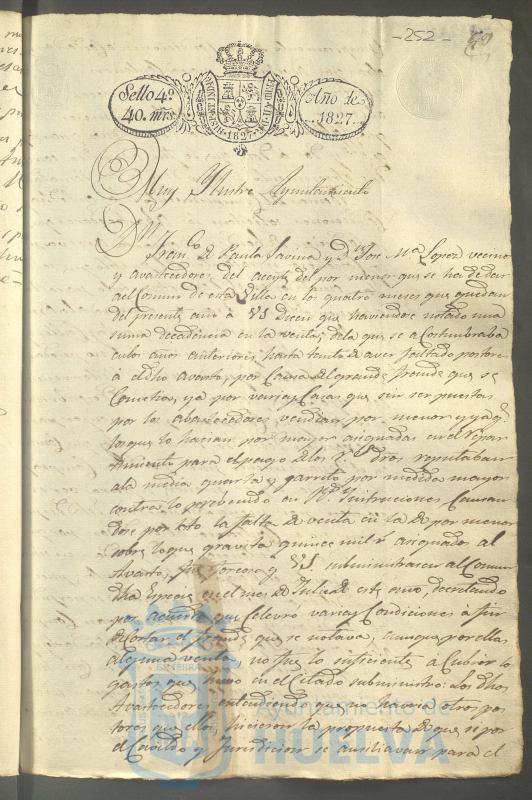 -252-
Sello 4º
40. mrs
Año de
1827.
Muy Ilustre Ayuntamiento
Dn Franco. de Paula Savina y Dn Jose Ma Lopez vecinos
y avastecedores del aceyte del por menor que se ha de dar
al Comun de esta Villa en los quatro meses que quedan
del presente año a VS Dicen que haviendose notado una
suma decadencia en la venta, de la que se acostumbraba
en los años anteriores, hasta tanto de aver faltado postores
á el dho avasto, por Causa del grande fraude que se
Cometia, ya por varias Casas que sin ser puestas
por los abastecedores vendian por menor y ya
los que lo hacian por mayor asignados en el repar
timiento para el pago de los Rs dros reputaban
a la media quarta y garrito por medida mayor
contra lo prebenido en Rs Instrucciones Causan
dose por esto la falta de venta en la de por menor
sobre la que gravita quince mil rs asignados al
Avasto, fue forzoso q VS. subministrasen al Comun
dha especie en el mes de Julio de este año, decretando
por acuerdo que Celevró varias Condiciones a fin
de Cortar el fraude que se notava, aunque por ellas
alguna venta, no fue lo suficiente a Cubrir los
gastos que huvo en el Citado subministro: Los dhos
Avastecedores entendiendo que no havia otros pos
tores que ellos, hicieron la propuesta de que si por
el Cavildo y Jurisdicion se auxiliavan para el
Ayuntamiento de
HUELVA